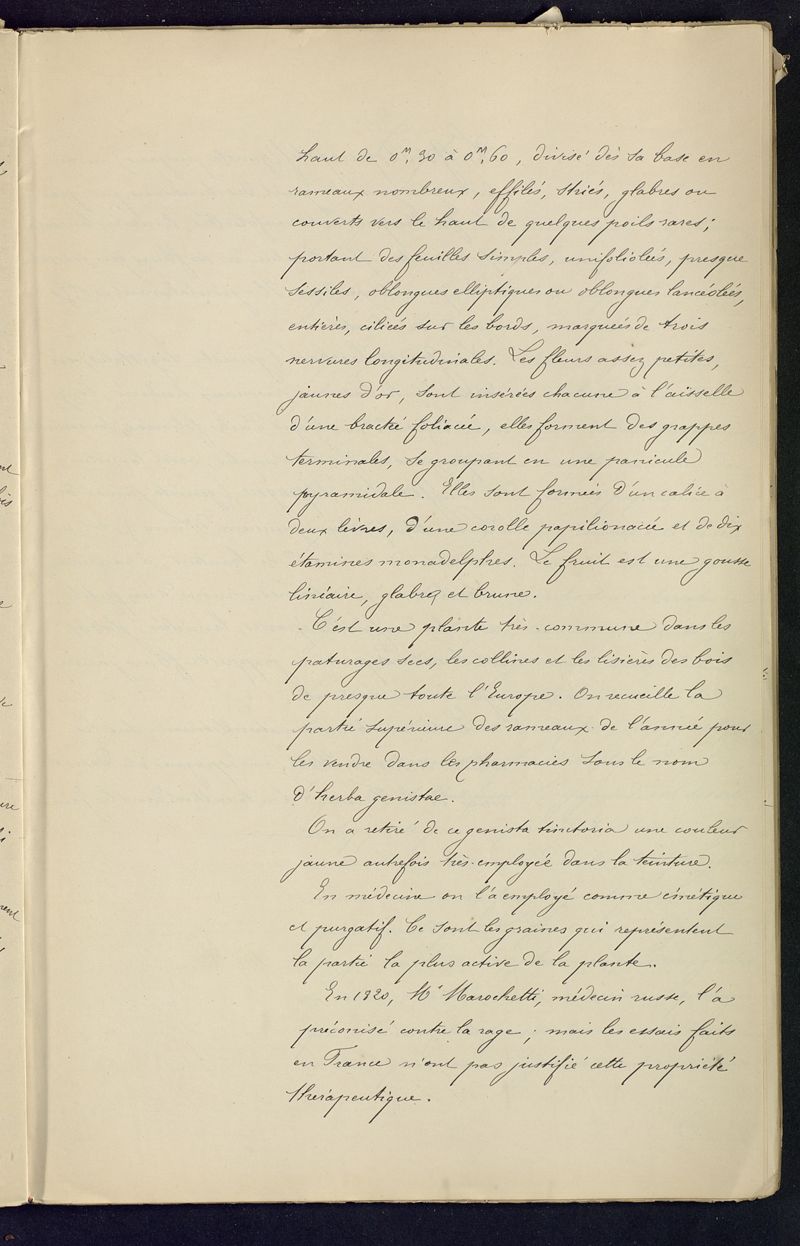 haut de 0m,30 à 0m,60, divisé dès sa base en
rameaux nombreux, effilés, striés, glabres ou
couverts vers le haut de quelques poils rares;
portant des feuilles simples, unifoliolées, presque
sessiles, oblongues elliptiques ou oblongues lancéolées,
entières, ciliées sur les bords, marquées de trois
nervures longitudinales. Les fleurs assez petites,
jaunes d'or, sont insérées chacune à l'aisselle
d'une bractée foliacée, elles forment des grappes
terminales, se groupant en une panicule
pyramidale. Elles sont formées d'un calice à
deux lèvres, d'une corolle papilionacée et de dix
étamines monadelphes. Le fruit est une gousse
linéaire, glabre et brune.
C'est une plante très-commune dans les
paturages secs, les collines et les lisières des bois
de presque toute l'Europe. On recueille la
partie supérieure des rameaux de l'année pour
les vendre dans les pharmacies sous le nom
d'herba genistae.
On a retiré de ce genista tinctoria une couleur
jaune autrefois très-employée dans la teinture.
En médecine on l'a employé comme émétique
et purgatif. Ce sont les graines qui représentent
la partie la plus active de la plante.
En 1820, Mr Marochetti, médecin russe, l'a
préconisé contre la rage; mais les essais faits
en France n'ont pas justifié cette propriété
thérapeutique.